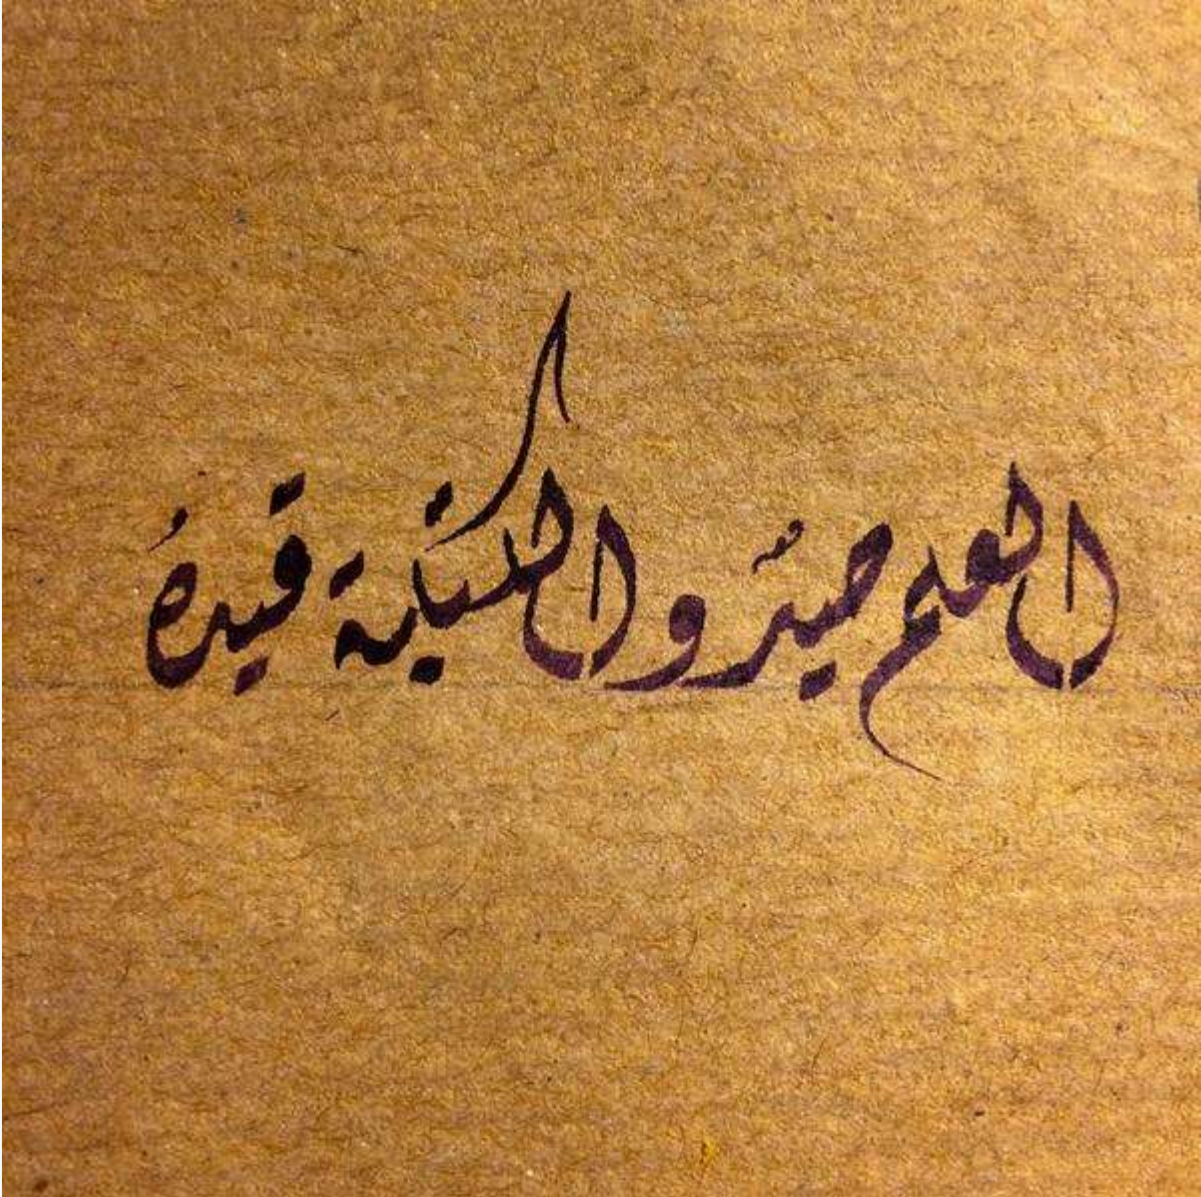 العلم صيدٌ والكتابة قيدهُ